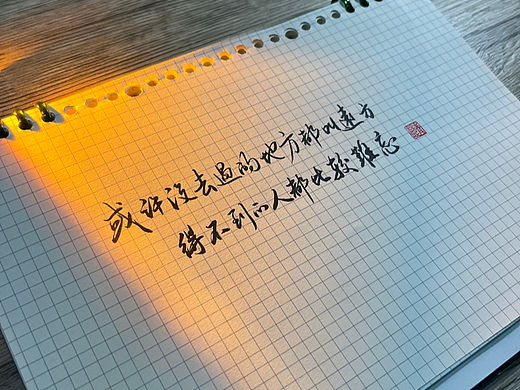 或许没去过的地方都叫遠方
得不到的人都比较難忘